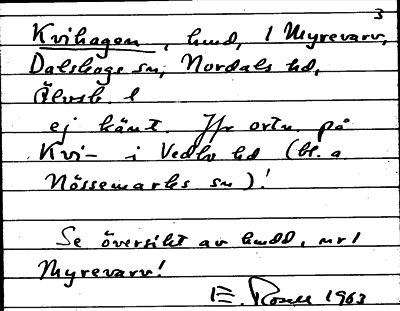 3
Kvihagen, hmd, 1 Myrevarv,
Dalskogs sn, Nordals hd,
Älvsb. l
ej känt. Jfr ortn. på
Kvi- i Vedbo hd (bl. a
Nössemarks sn)!
Se översikt av hmdd, nr 1
Myrevarv!
E. Rosell 1963